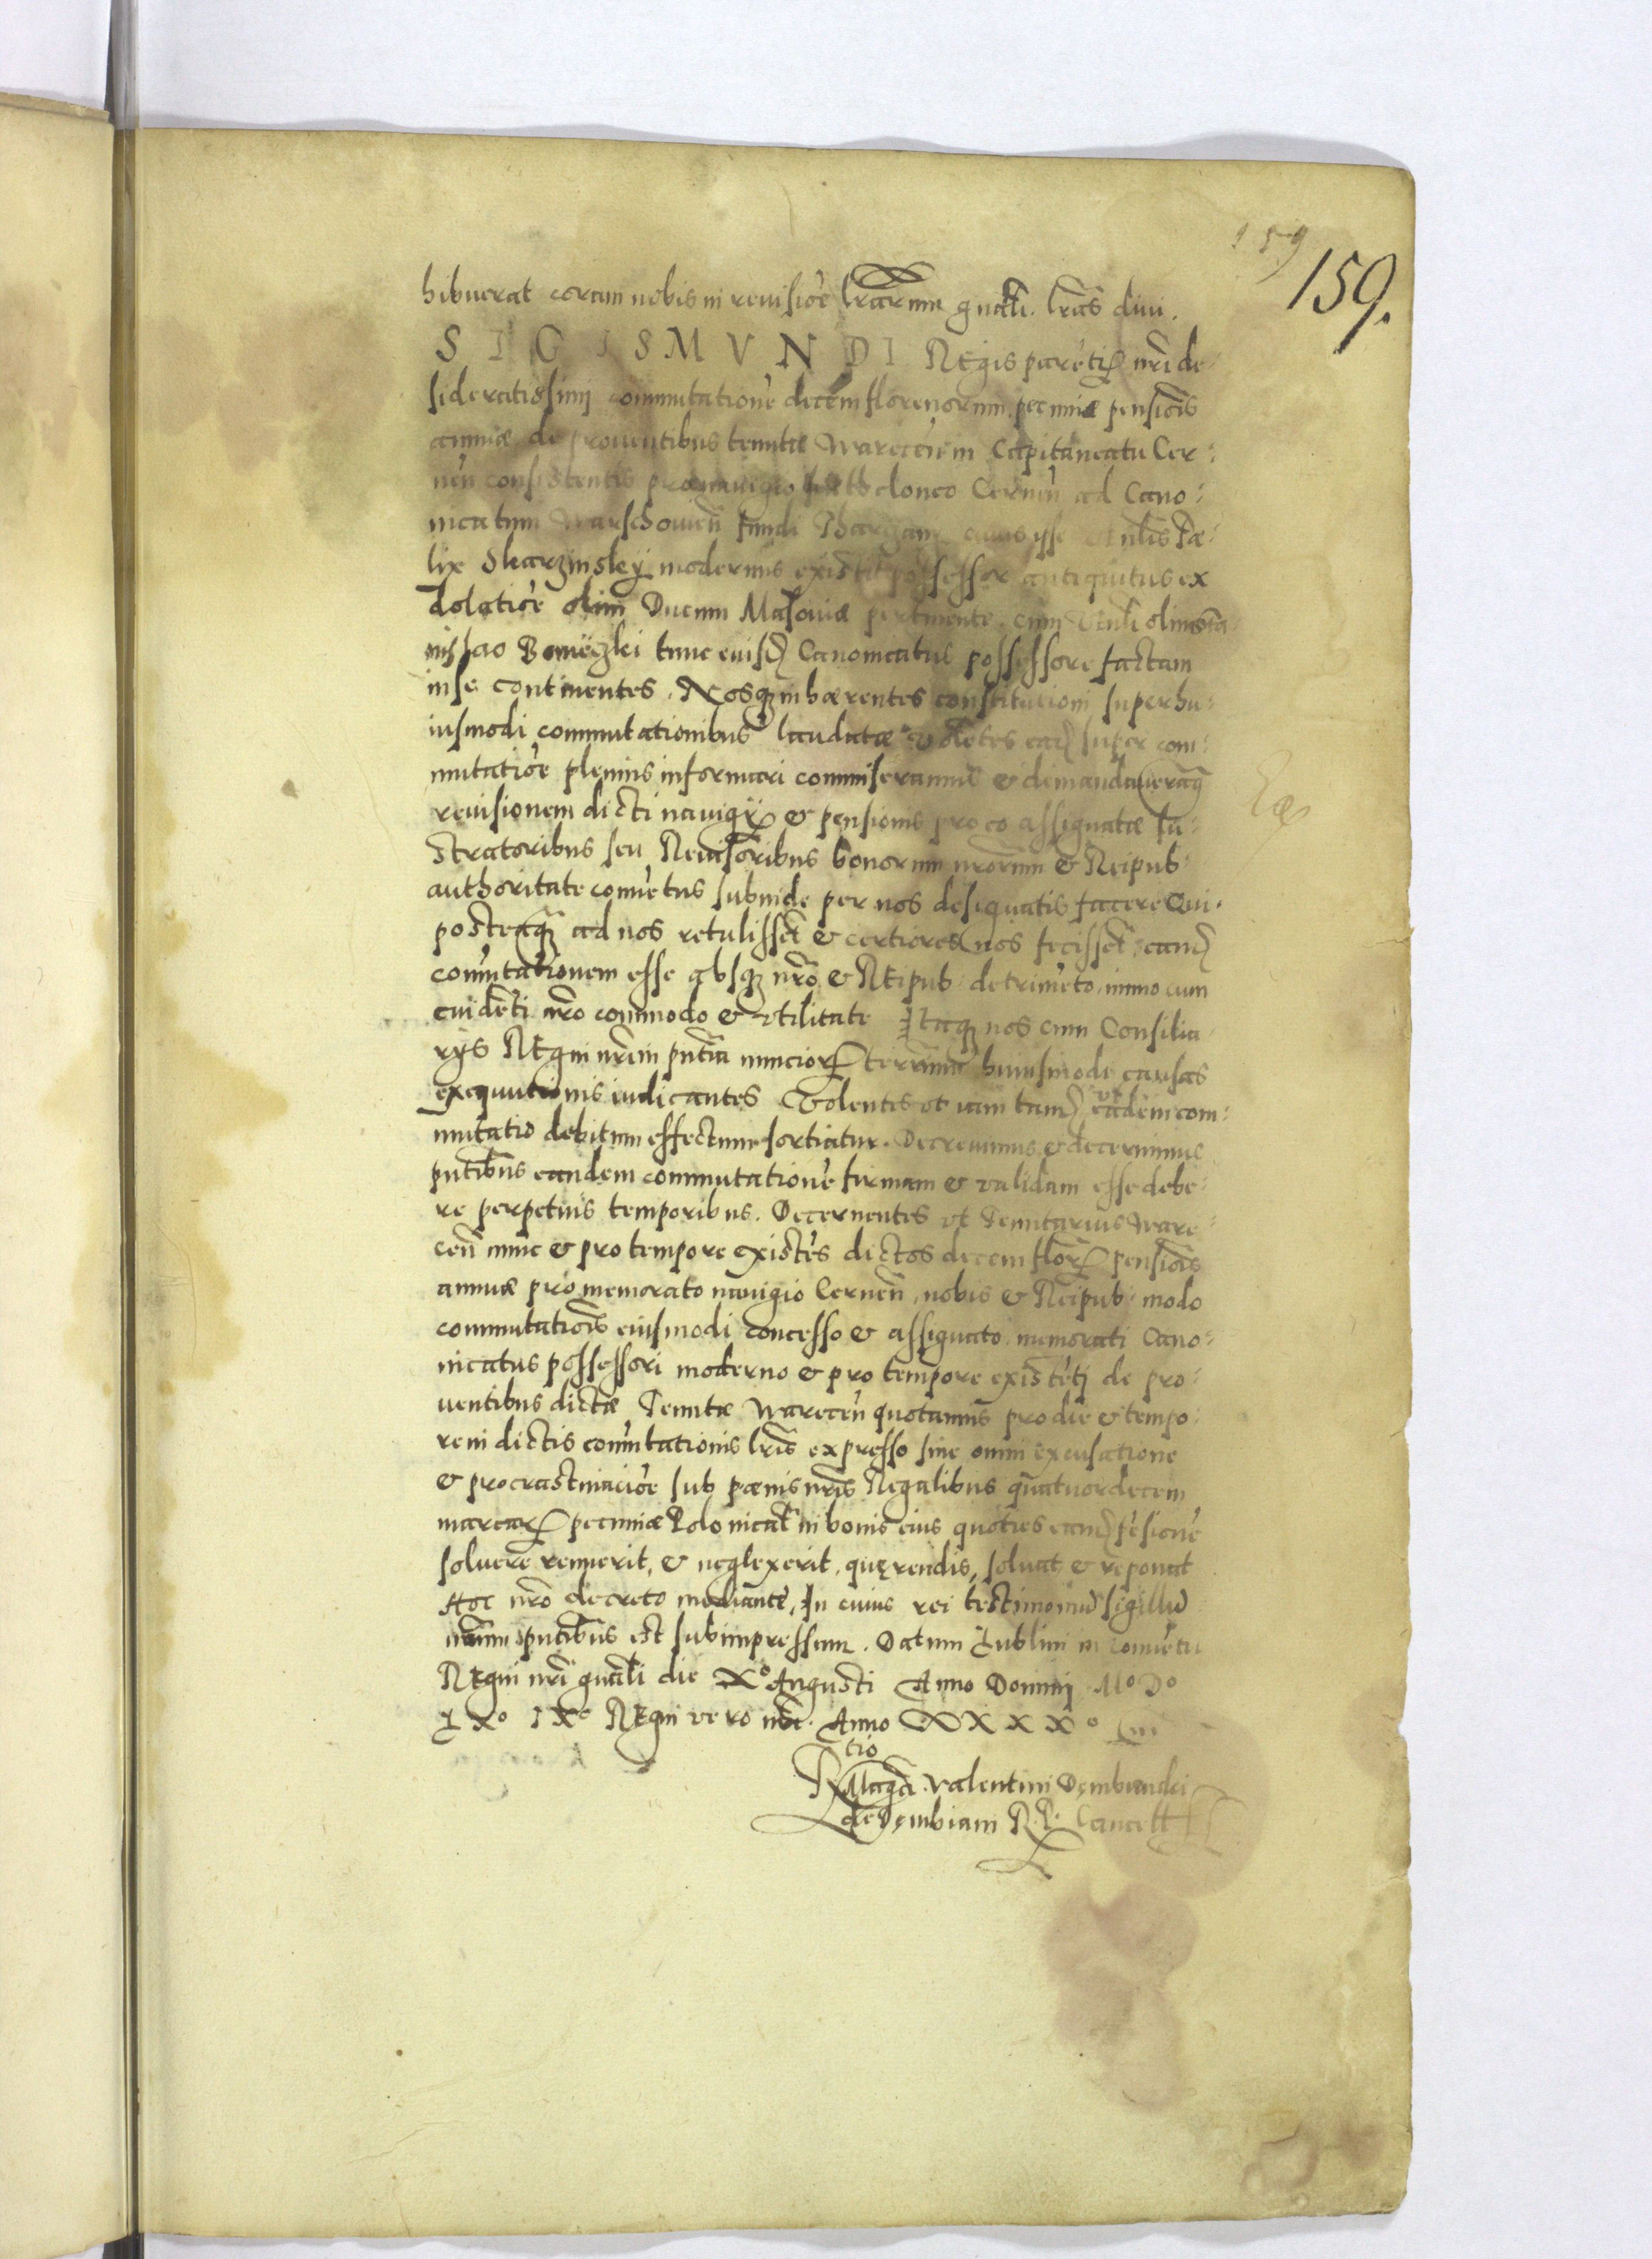 159
159.
hibuerat coram nobis in reuisiōe lrārum gnāli. lrās diui.
SIGISMVNDI REgis parētis nrī de:
sideratissimi commutationē decem florenorum pecuniæ pensiōis
annuæ de prouentibus tenutæ Warecēn in Capitaneatu Cer:
nēn consistentis pro nauigio Cernēn ad Cano:
nicatum Warschouiēn fundi cuius ipse Fæ:
lix Skarzinsky modernus existit possessor antiquitus ex
dolatiōe olim Ducum Masouiæ pertinente. cum Vēnli olim Sta:
nislao tunc eiusd Canonicatus possessore factam
in se continentes. Nosq inhærentes constitutioni super hu:
iusmodi commutationibus laudatæ volētes ead super com:
mutatiōe plenius informari commiseramus & demandaueramq
reuisionem dicti nauigij & pensionis pro eo assignatæ lu:
stratoribus seu Reuisoribus bonorum nrōrum & Reipub:
authoritate conuētus subinde per nos designatis facere Qui.
posteaq ad nos retulissēt & certiores nos fecissēt, eand
comūtationem esse absq nrō & REipub: detrimēto, immo cum
euidēti nrō commodo & vtilitate Itaq nos cum Consilia:
rijs REgni nrī in pntīa nuncior terrarum huiusmodi causas
exequutionis iudicantes Volentes vt iam tand eadem com:
mutatio debitum effectum sortiatur. Decreuimus & decernimus
pntībus eandem commutationē firmam & validam esse debe:
re perpetuis temporibus. Decernentes vt Tenutarius Ware:
cēn nunc & pro tempore existēs dictos decem flor pensiōis
annuæ pro memorato nauigio Cernēn, nobis & REipub: modo
commutatiōis eiusmodi concesso & assignato memorati Cano:
nicatus possessori moderno & pro tempore existēti de pro:
uentibus dictæ Tenutæ Warecēn quotannis pro die & tempo:
re in dictis comūtationis lrīs expresso sine omni excusatione
& procrastinaciōe sub pænis nrīs Regalibus quatuordecem
marcar pecuniæ Polonical in bonis eius quoties eand pēsionē
soluere renuerit, & neglexerit, quęrendis, soluat & reponat
Hoc nrō decreto mediante, In cuius rei testimoniū sigillū
nrūm pntībus est subimpressum. Datum Lublini in conuētu
REgni nrī gnāli die Xº Augusti Anno Domini Mº Dº
LXº IXº REgni vero nrī. Anno XXXXº
Rtio Magci. Valentini Dembinski
de Dembiani R. P. Cancell